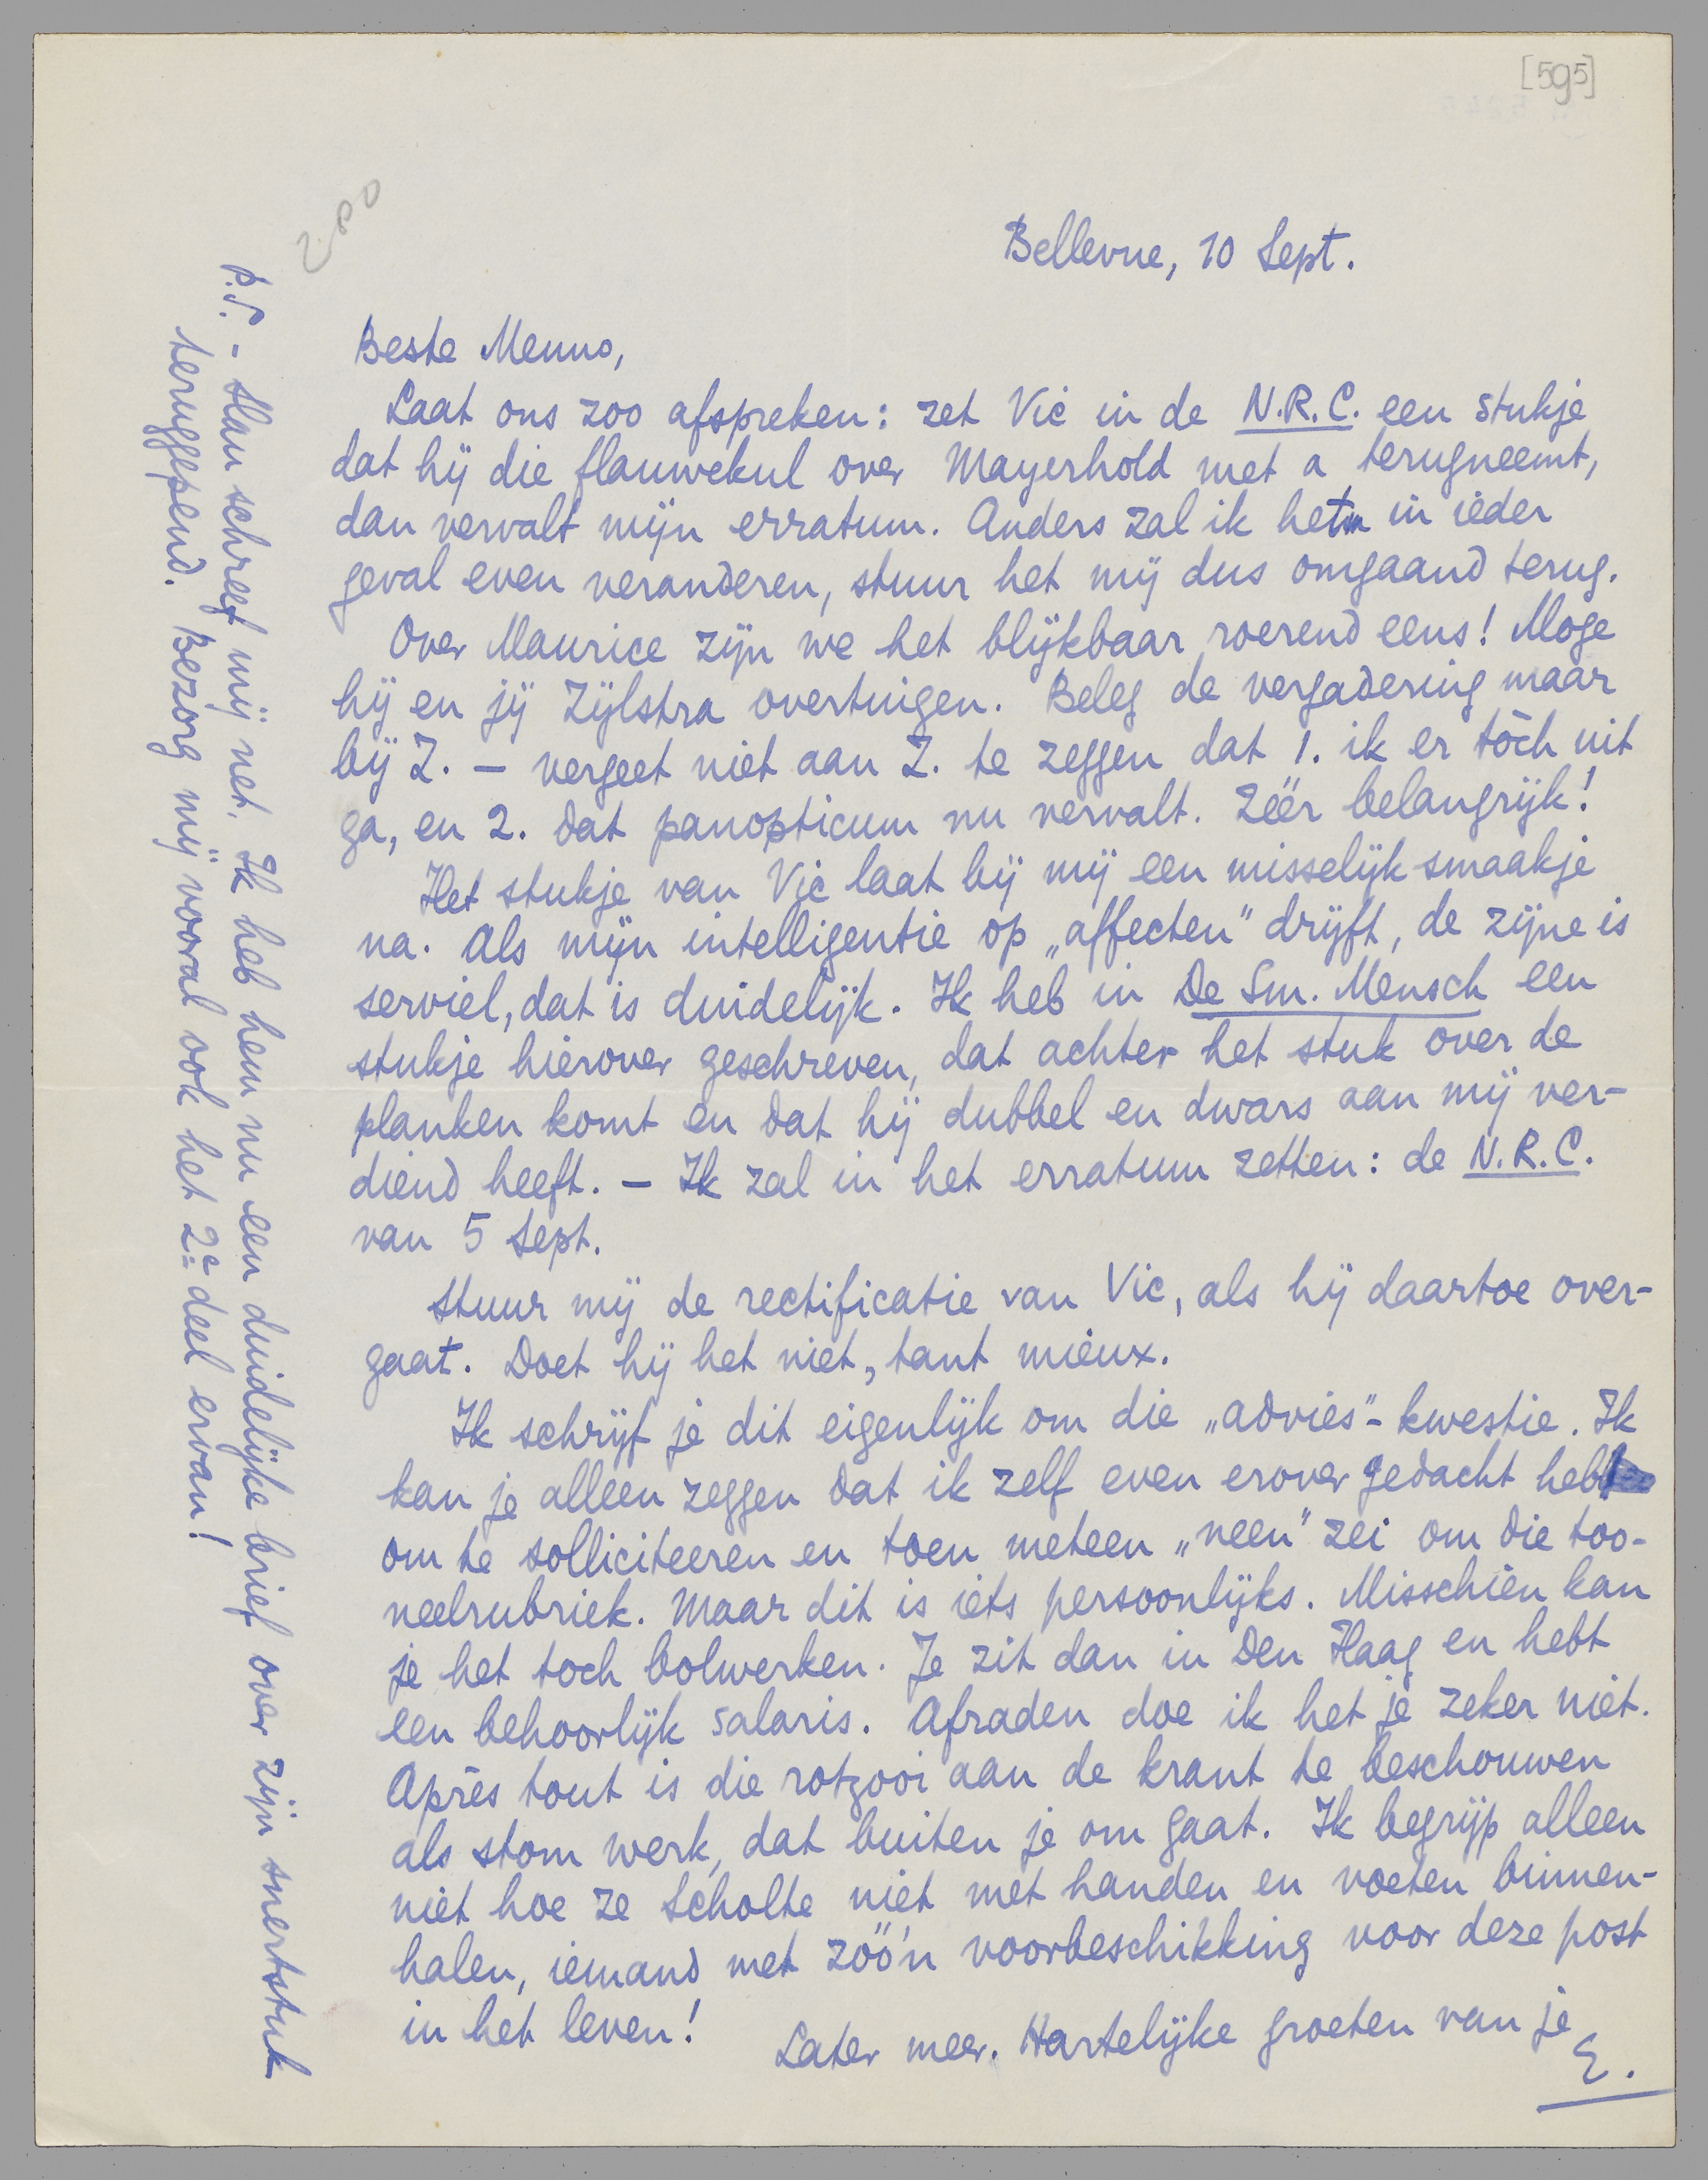 [595]
280
Bellevue, 10 Sept.
Beste Menno,
Laat ons zoo afspreken: zet Vic in de N.R.C. een stukje
dat hij die flauwekul over Mayerhold met a terugneemt,
dan vervalt mijn erratum. Anders zal ik het in ieder
geval even veranderen, stuur het mij dus omgaand terug.
Over Maurice zijn we het blijkbaar roerend eens! Moge
hij en jij Zijlstra overtuigen. Beleg de vergadering maar
bij Z. — vergeet niet aan Z. te zeggen dat 1. ik er tòch uit
ga, en 2. dat panopticum nu vervalt. Zéér belangrijk!
Het stukje van Vic laat bij mij een misselijk smaakje
na. Als mijn intelligentie op „affecten" drijft, de zijne is
serviel, dat is duidelijk. Ik heb in De Sm. Mensch een
stukje hierover geschreven, dat achter het stuk over de
planken komt en dat hij dubbel en dwars aan mij ver-
diend heeft. — Ik zal in het erratum zetten: de N.R.C.
van 5 Sept.
Stuur mij de rectificatie van Vic, als hij daartoe over-
gaat. Doet hij het niet, tant mieux.
Ik schrijf je dit eigenlijk om die „advies"-kwestie. Ik
kan je alleen zeggen dat ik zelf even erover gedacht heb
om te solliciteeren en toen meteen „neen" zei om die too-
neelrubriek. Maar dit is iets persoonlijks. Misschien kan
je het toch bolwerken. Je zit dan in Den Haag en hebt
een behoorlijk salaris. Afraden doe ik het je zeker niet.
Après tout is die rotzooi aan de krant te beschouwen
als stom werk, dat buiten je om gaat. Ik begrijp alleen
niet hoe ze Scholte niet met handen en voeten binnen-
halen, iemand met zóó'n voorbeschikking voor deze post
in het leven!
Later meer. Hartelijke groeten van je
E.
P.S. - Slau schreef mij net. Ik heb hem nu een duidelijke brief over zijn snertstuk
teruggepend. Bezorg mij vooral ook het 2e deel ervan!